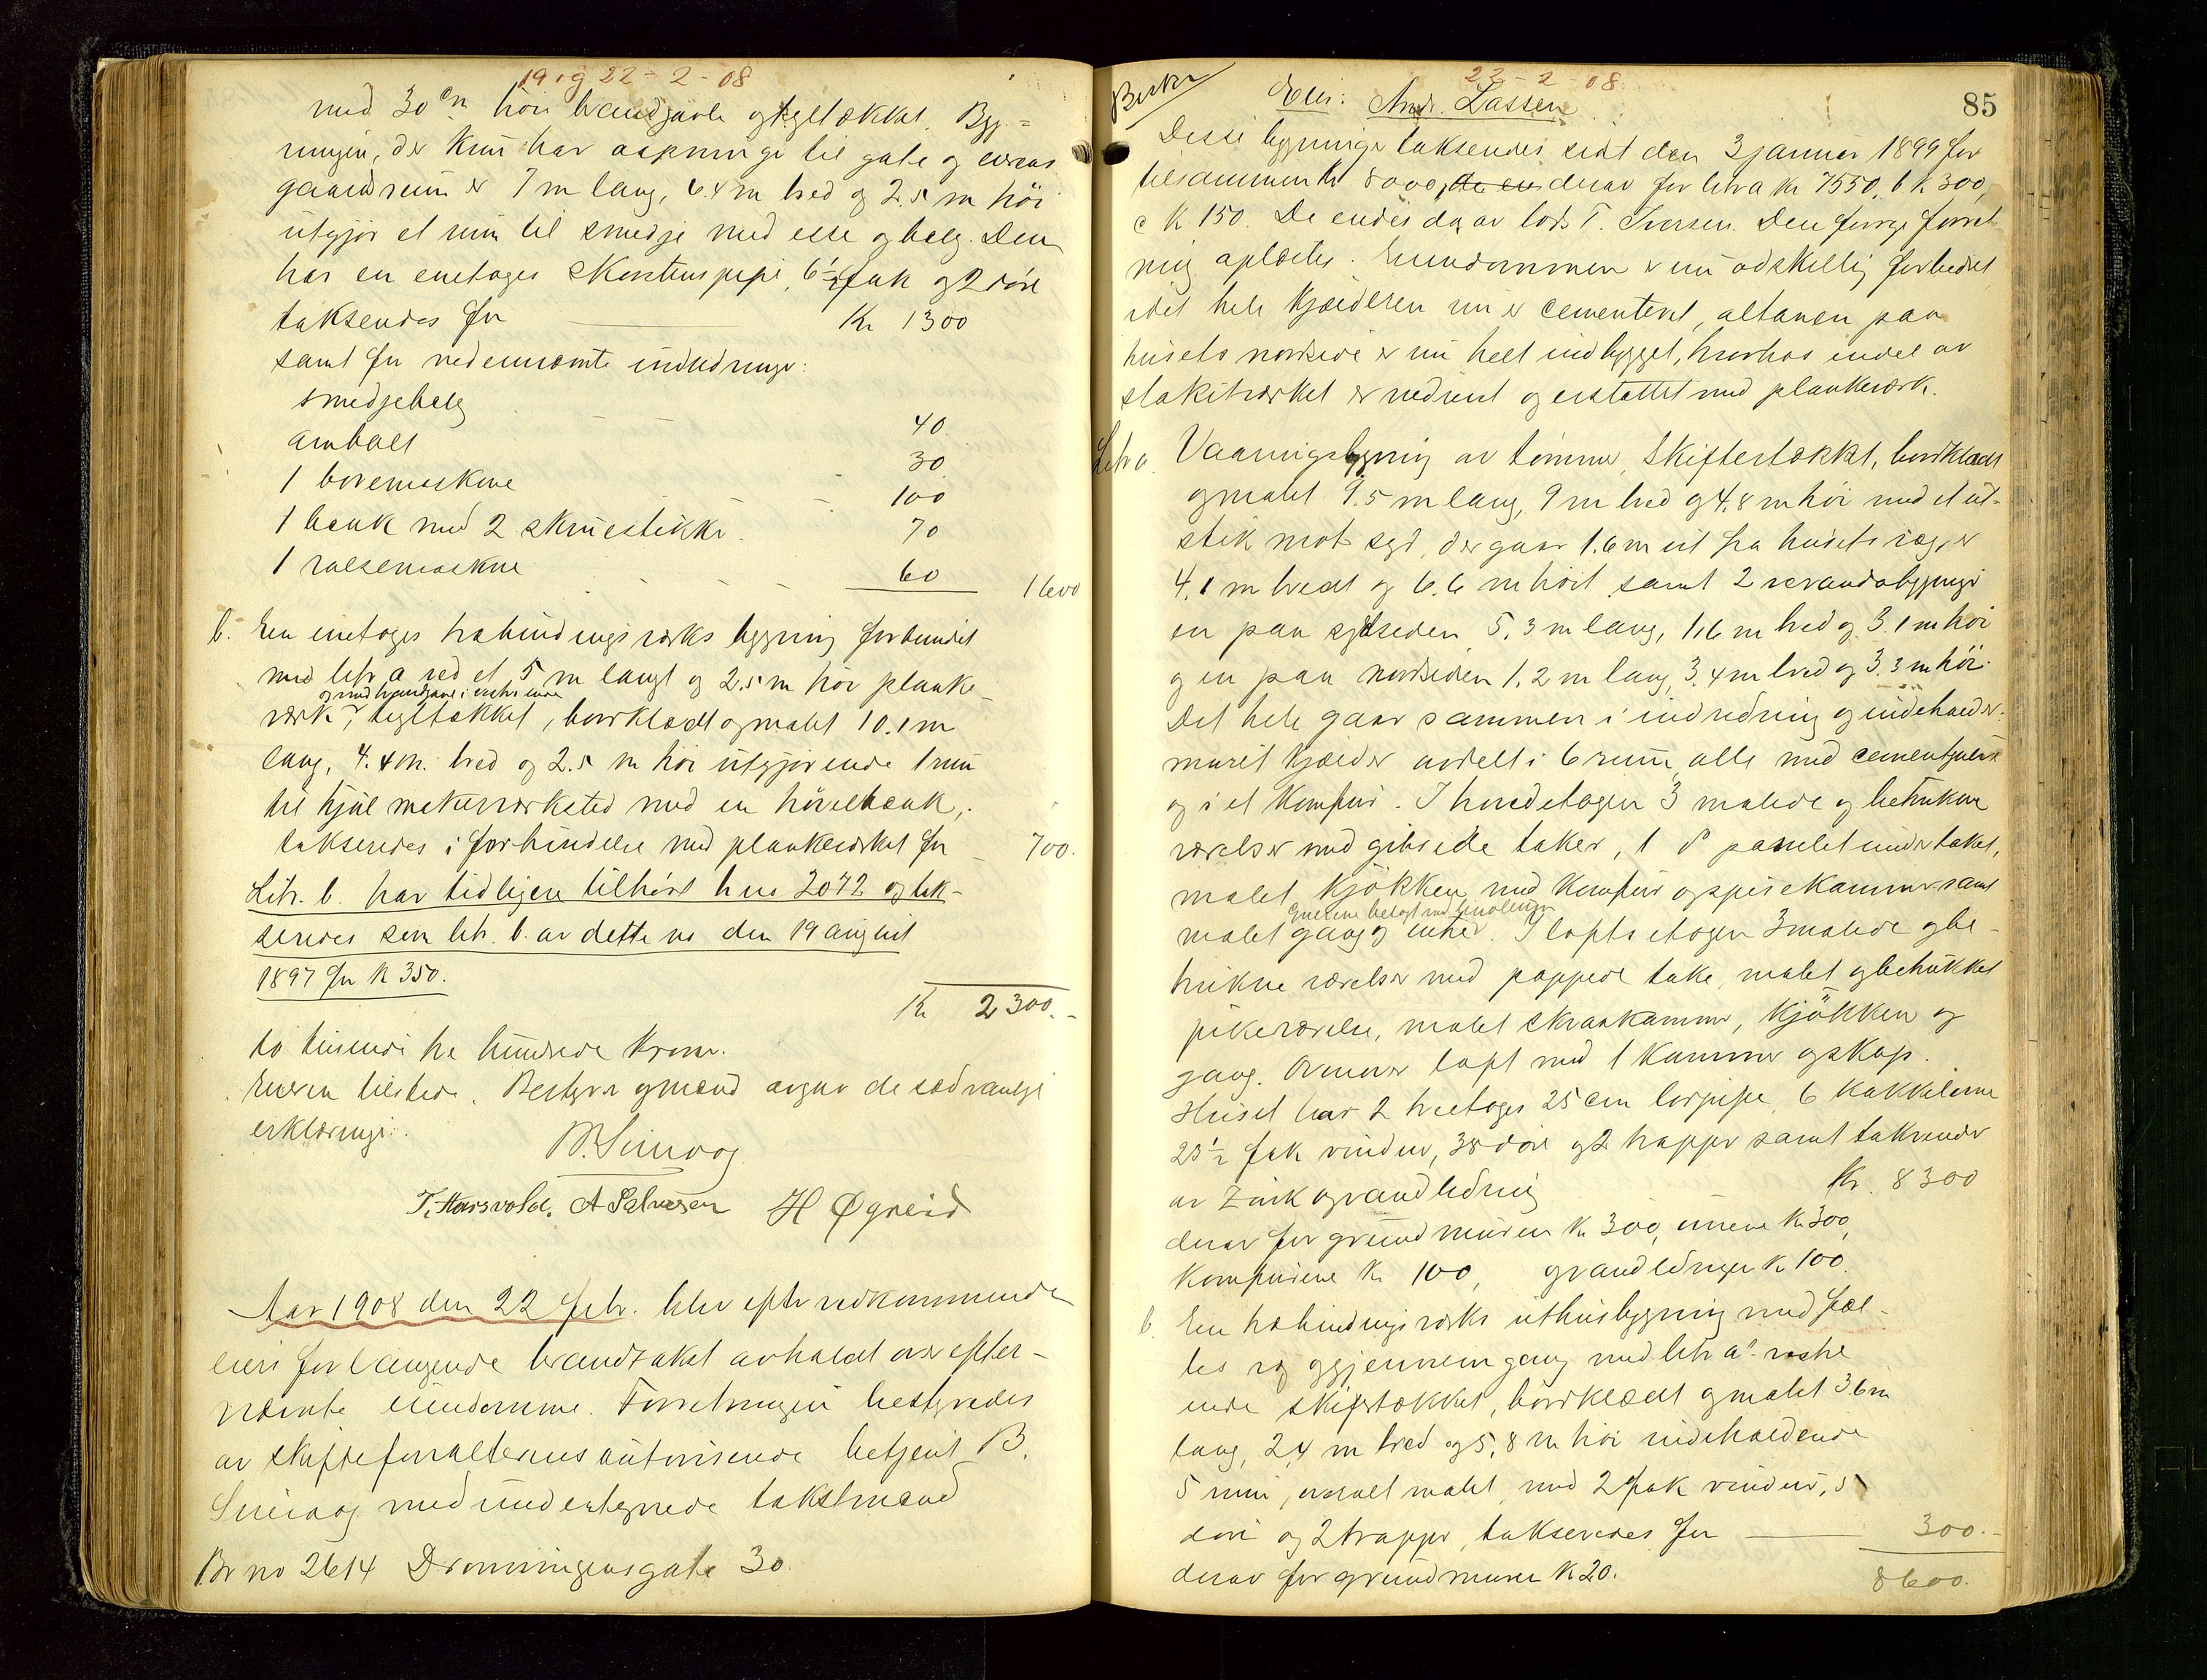 19 og 22 - 2 - 08
med 30 cm høi brandgavle og tegltækket. Byg-
ningen, der kun har aapninger til gate og
gaardsrum er 7 m lang, 6.4 m bred og 2.5 m høi
utgjør et rum til smedje med esse og belg. Den
har en enetages skorstenspipe, 6 1/2 fak og 2 døre
takseredes for Kr 1300
samt for nedennævnte indredninger:
smedjebelg 40
ambolt 30
1 boremaskine 100
1 bænk med 2 skruestikker 70
1 valsemaskine 60 1600
b. En enetages træbindingsverks bygning forbundet
med litr a ved et 5 m langt og 2.5 m høi planke-
og med brandgavl i vestre ende
værk, tegltækket, bordklædt og malet 10.1 m
lang, 4.4 m. bred og 2.5 m høi utgjørende 1 rum
til hjulmakerværksted med en høvelbænk,
takseredes i forbindelse med plankeværket for 700.
Litr. b. har tidligere tilhørt hus 2072 og tak-
seredes som litr. b. av dette no den 19 august
1897 for k 350.
Kr 2300.-
to tusende tre hundrede kroner.
Eieren tilstede. Bestyrer og mænd avgav de sædvanlige
erklæringer.
T. Harsvold. A Salvesen H Øgreid
Aar 1908 den 22 febr. blev efter vedkommende
eiers forlangende brandtakst avholdt over efter-
nævnte eiendomme. Forretningen bestyredes
av skifteforvalterens autoriserede betjent B.
med undertegnede takstmænd
Br no 2614 Dronningensgate 30.
22 - 2 - 08
85
Eier: Andr. Lassen
Disse bygninger takseredes sidst den 3 januar 1899 for
tilsammen kr 8000, derav for litra a kr 7550, b k 300,
c k 150. De eiedes da av lods T. Iversen. Den forrige forret-
ning oplæstes. Eiendommen er nu adskillig forbedret
idet hele kjælderen nu er cementeret, altanen paa
husets nordside er nu helt indbygget, hvorhos endel av
stakitværket er nedrevet og erstattet med plankeværk.
Litr a. Vaaningsbygning av tømmer, skiffertækket, bordklædt
og malet 9.5 m lang, 9 m bred og 4.8 m høi med et ut-
stik mot syd, der gaar 1.6 m ut fra husets væg, er
4.1 m bredt og 6.6 m høit samt 2 verandabygninger
en paa sydsiden 5.3 m lang, 1.6 m bred og 3.1 m høi
og en paa nordsiden 1.2 m lang, 3.4 m bred og 3.3 m høi.
Det hele gaar sammen i indredning og indeholder:
muret kjælder avdelt i 6 rum, alle med cementgulv
og i et komfur. I hovedetagen 3 malede og betrukne
værelser med gibsede taker, 1 do panelet under taket,
malet kjøkken med komfur og spisekammer samt
gulvene belagt med linoleum
malet gang og entre. I loftsetagen 3 malede og be-
trukne værelser med pappede take, malet og betrukket
pikeværelse, malet skraakammer, kjøkken og
gang. Ovenover loft med 1 kammer og skap.
Huset har 2 treetages 25 cm lørpipe, 6 kakkelovne
23 1/2 fak vinduer, 38 døre og 2 trapper samt takrender
av zink og vandledning Kr. 8300
derav for grundmuren k 300, ovnene kr 300,
komfurene kr 100, og vandledningen k 100.
b. En træbindingsverks uthusbygning med fæl-
les væg og gjennemgang med litr a's vestre
ende skiffertækket, bordklædt og malet 3.6 m
lang, 2,4 m bred og 5,8 m høi indeholdende
5 rum, overalt malet, med 2 fak vinduer, 5
døre og 2 trapper, takseredes for 300.-
derav for grundmuren k 20. 8600.